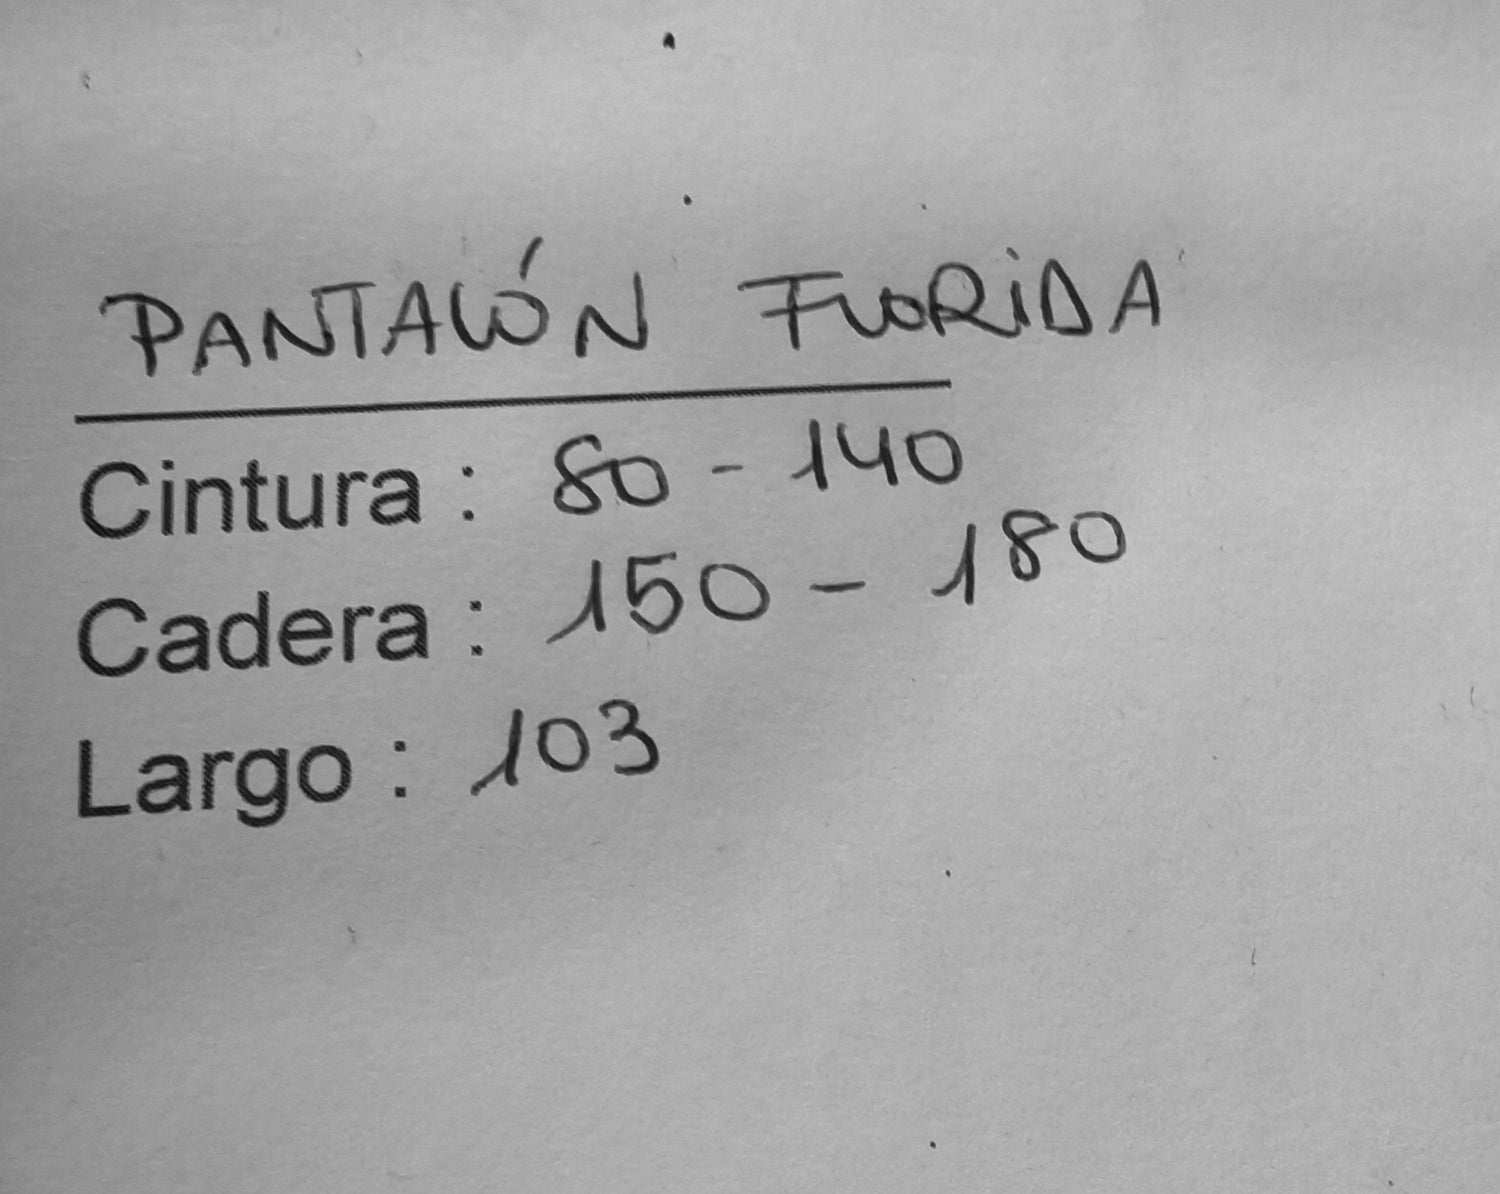 PANTALÓN FLORIDA
Cintura : 80 - 140
Cadera : 150 - 180
Largo : 103